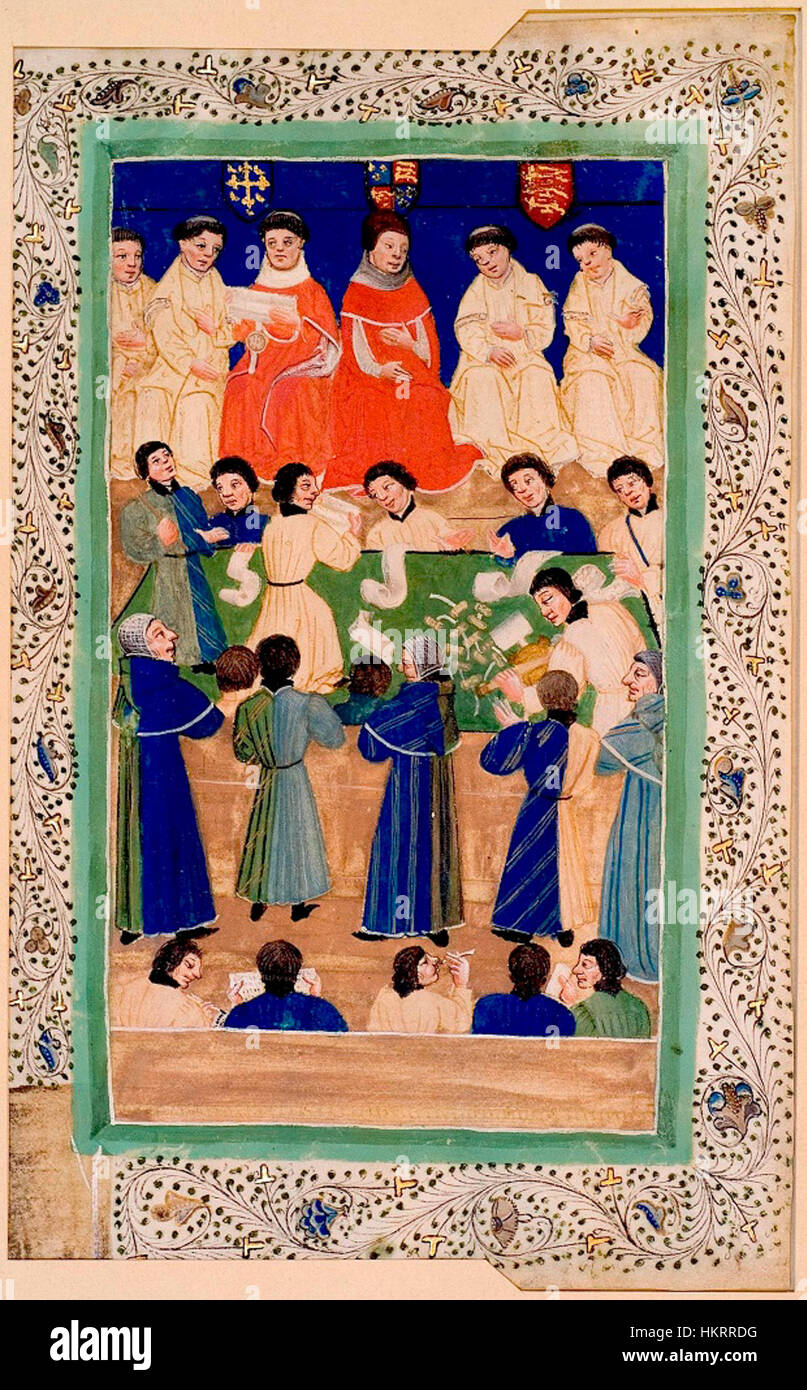 alamy
alamy
alamy
a
a
alamy
Image ID: HKRRDG
www.alamy.com